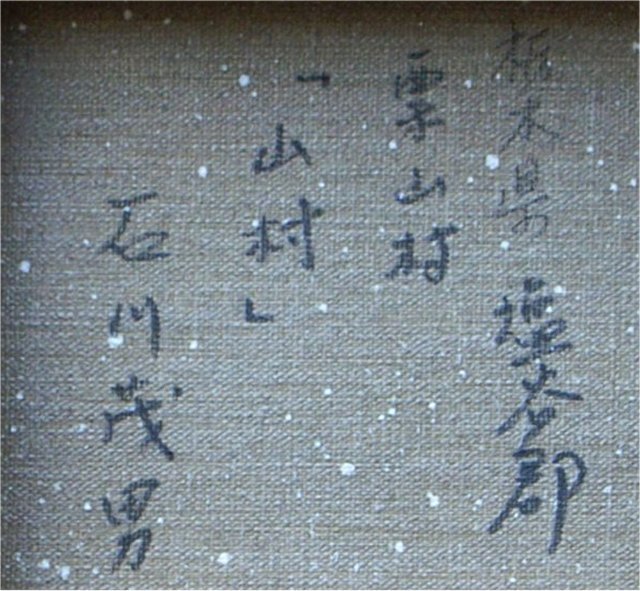 栃木県 塩谷郡
栗山村
「山村」
石川茂男